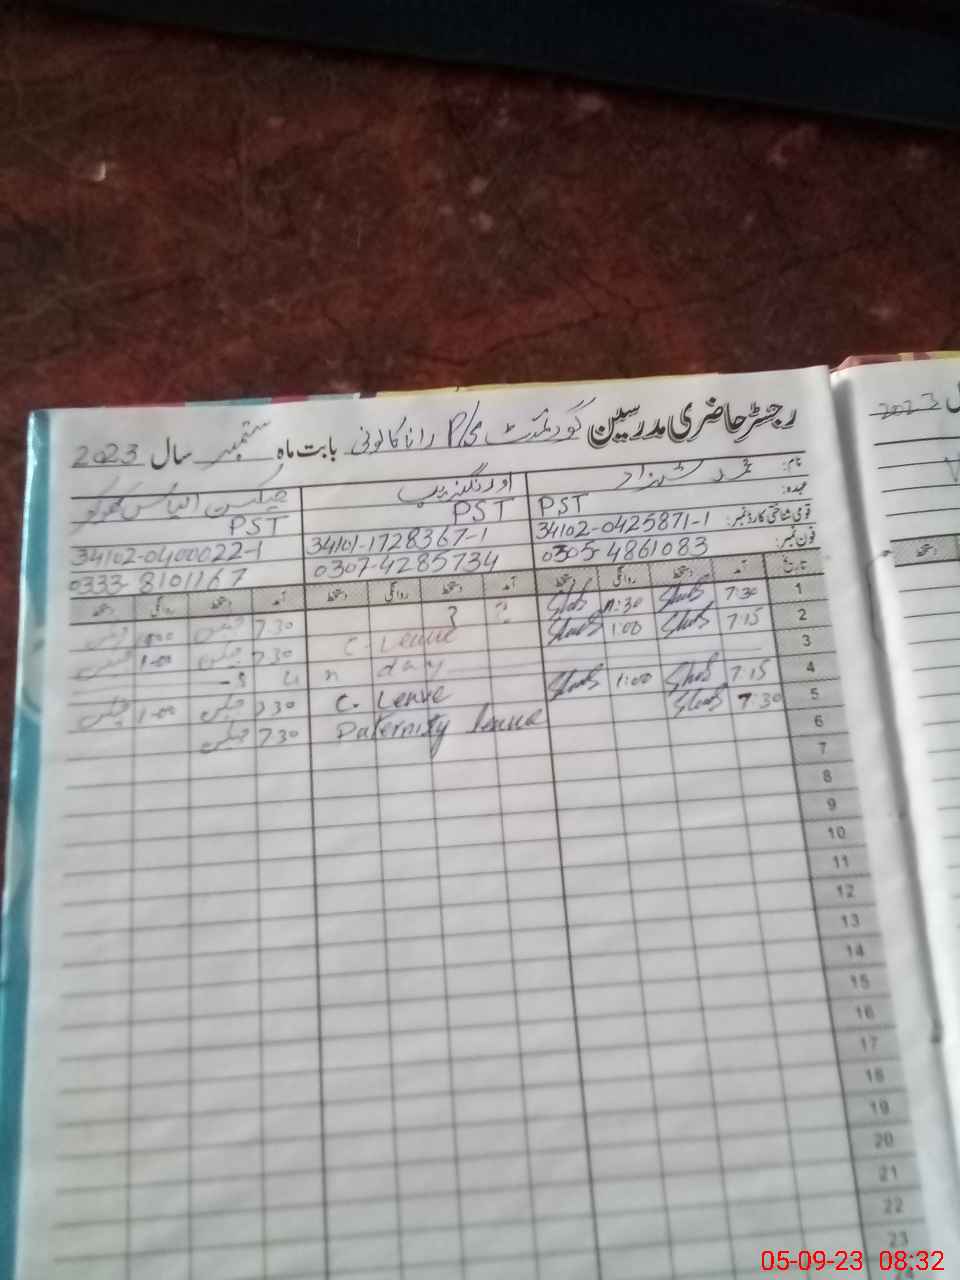 رجسٹر حاضری مدرسین گورنمنٹ P/S رانا کالونی بابت ماہ ستمبر سال 2023
نام: محمد شہزاد اورنگزیب جیکسن الیاس کھوکھر
عہدہ: PST PST PST
قومی شناختی کارڈ نمبر: 34102-0425871-1 34101-1728367-1 34102-0400022-1
فون نمبر: 0305-4861083 0307-4285734 0333-8101167
تاریخ آمد دستخط روانگی دستخط آمد دستخط روانگی دستخط آمد دستخط روانگی دستخط
1 7:30 11:30 ? ? 7.30
2 7:15 1:00 C. Leave 7.30 1-00
3 S u n day
4 7:15 1:00 C. Leave 7.30 1-00
5 7:30 Paternity leave 7.30
6
7
8
9
10
11
12
13
14
15
16
17
18
19
20
21
22
23
2023
05-09-23 08:32